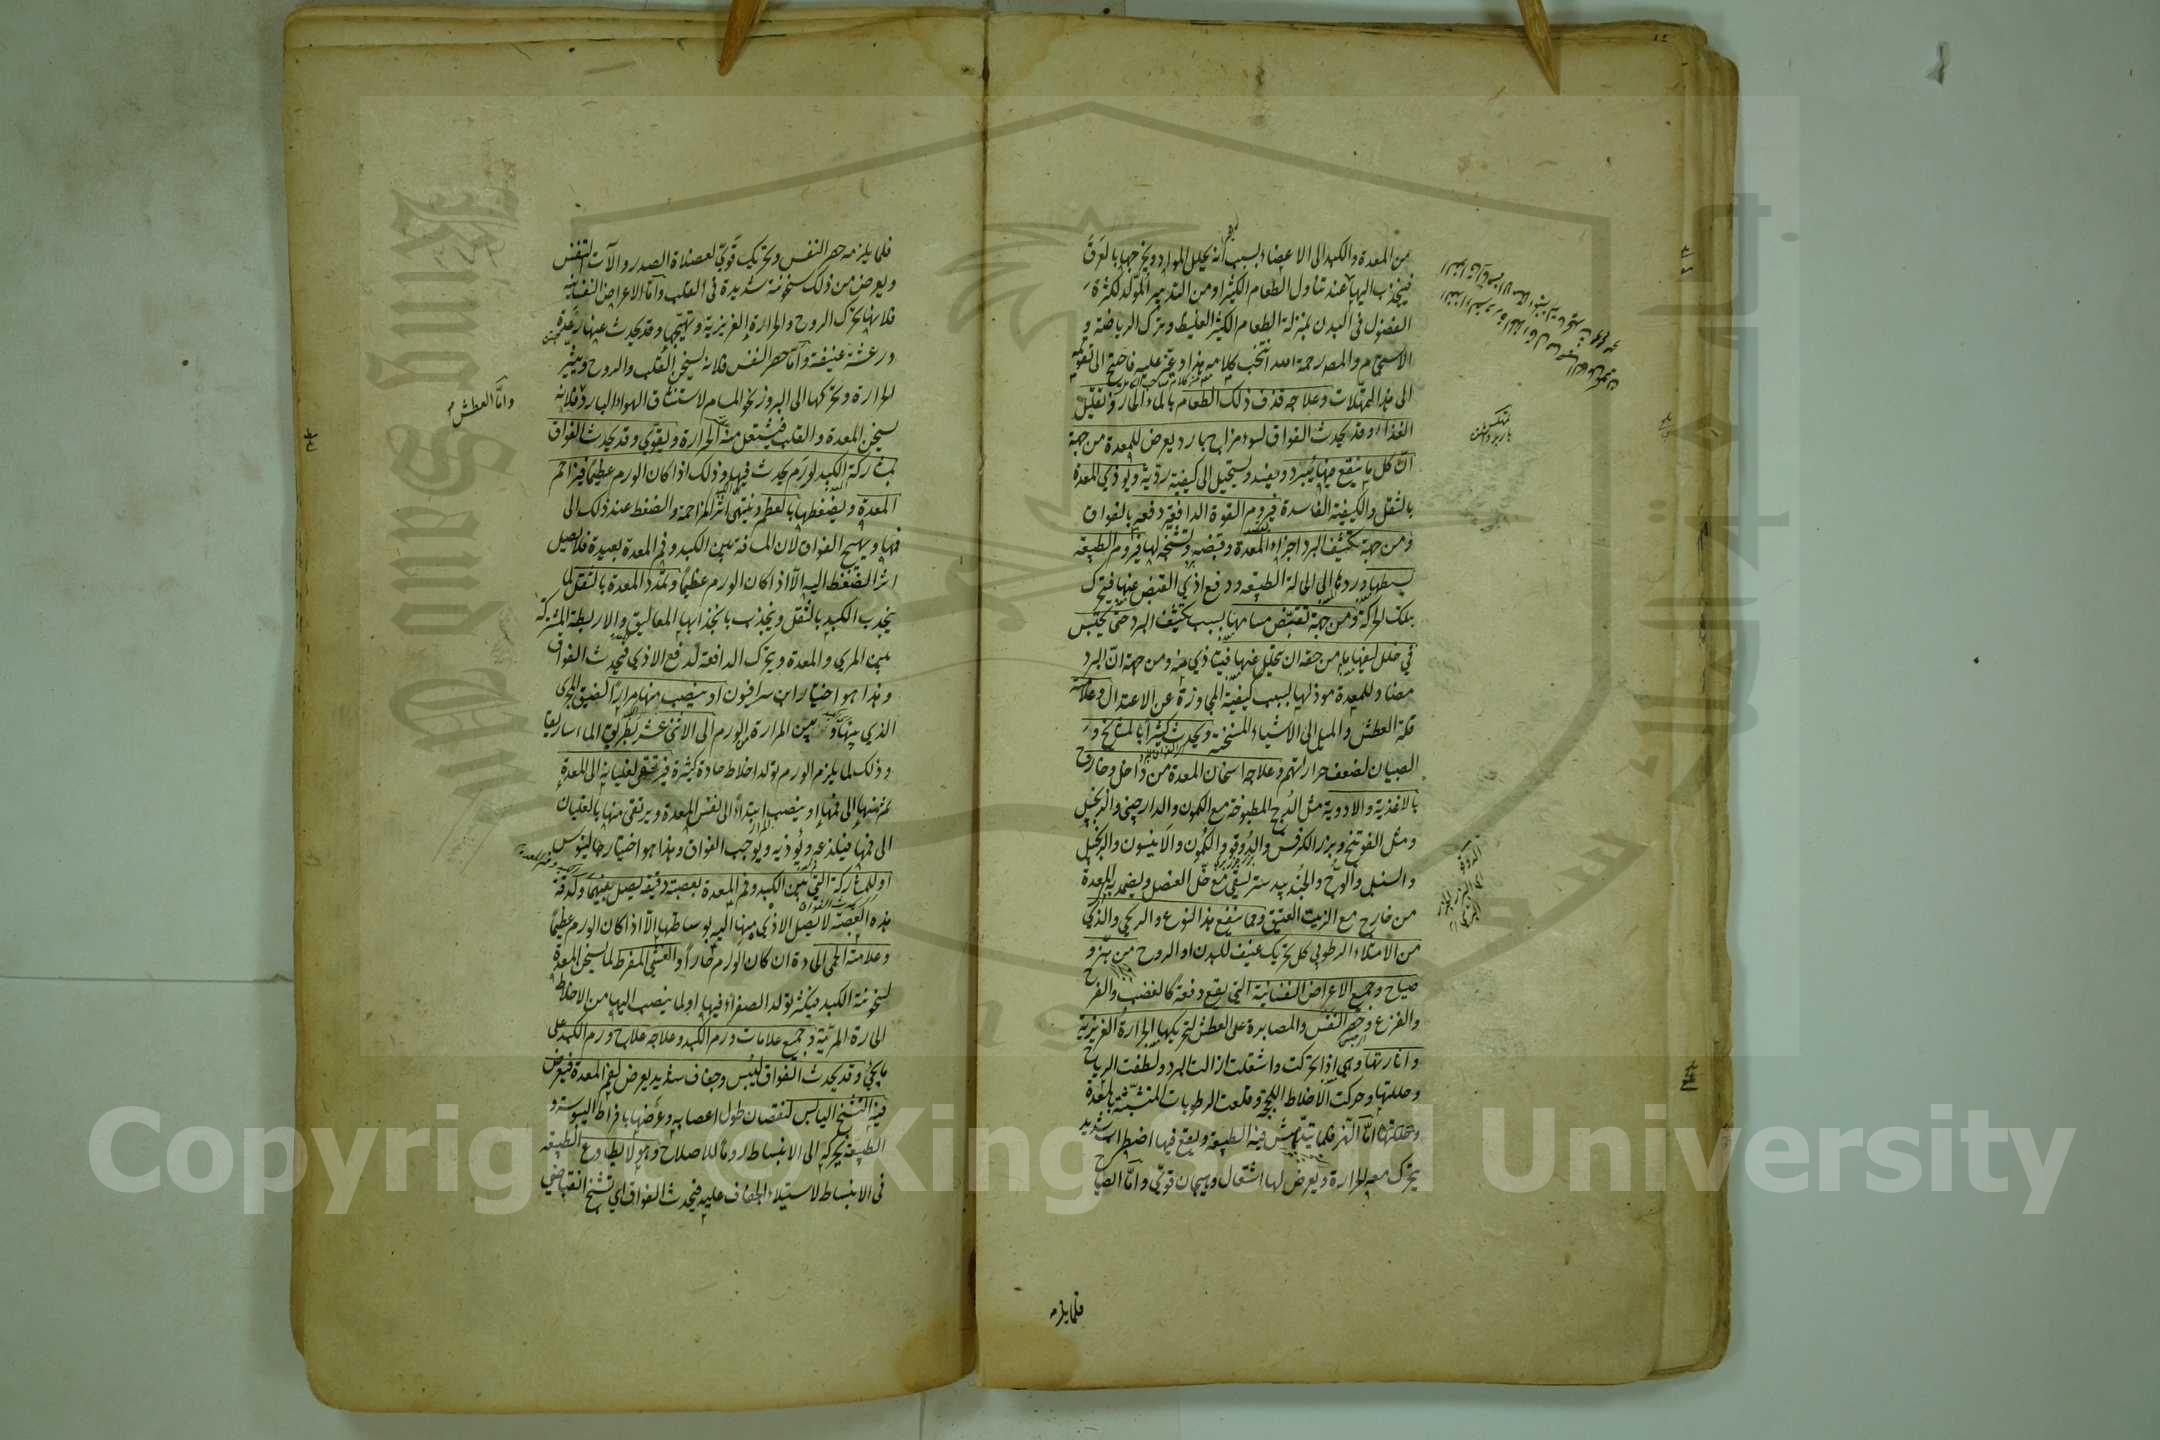 من المعدة والكبد الى الاعضاء بسبب انه يحلل المواد ويخرجها بالعرق
فينجذب اليها عند تناول الطعام الكثير او من التدبير المولد لكثرة
الفضول في البدن بمنزلة الطعام الكثير الغليظ وترك الرياضة و
الاستحمام والمصر رحمة الله انتخب كلامه هذا وغير عليه فاحتج الى تقويمه
الى هذا التمحلات وعلاجه قذف ذلك الطعام بالماء الحار وتقليل
الغذاء وقد يحدث الفواق لسوء مزاج بارد يعرض للمعدة من جهة
ان كل ما يقع فيها يبرد ويفسد ويستحيل الى كيفية ردية ويوذي المعدة
بالثقل والكيفية الفاسدة فيروم القوة الدافعة دفعه بالفواق
ومن جهة تكثيف البرد اجزاء المعدة وقبضه وتشنجه لها فيروم الطبيعة
بسطها وردها الى الحالة الطبيعية ودفع اذى القبض عنها فيتحرك
بتلك الحركة ومن جهة تقبض مسامها بسبب تكثيف البرد حتى يحتبس
في خلل ليفها ما من حقه ان يتحلل عنها فيتاذى منه ومن جهة ان البرد
مضاد للمعدة موذ لها بسبب كيفية المجاوزة عن الاعتدال وعلامته
قلة العطش والميل الى الاشياء المسخنة ويحدث كثيرا بالمشايخ و
الصبيان لضعف حرارتهم وعلاجه اسخان المعدة من داخل وخارج
بالاغذية والادوية مثل الدرج المطبوخة مع الكمون والدارصيني والزنجبيل
ومثل الفوتنج وبزر الكرفس والدوقو والكمون والانيسون والزنجبيل
والسنبل والوج والجندبيدستر يسقى مع خل العنصل ويضمد به المعدة
من خارج مع الزيت العتيق ومما ينفع هذا النوع والريحي والذي
من الامتلاء الرطوبي كل تحريك عنيف للبدن او الروح من هز و
صياح وجميع الاعراض النفسانية التي يقع دفعة كالغضب والفرح
والفزع وحصر النفس والمصابرة على العطش لتحريكها الحرارة الغريزية
واثارتها وهي اذا تحركت واشتعلت ازالت البرد ولطفت الرياح
وحللتها وحركت الاخلاط اللحجة وقلعت الرطوبات المتشبثة بالمعدة
وحللتها اما الهز فلما يتدهش فيه الطبيعة ويقع فيها اضطراب شديد
يتحرك معه الحرارة ويعرض لها اشتعال وهيجان قوي واما الصياح
فلما يلزمه
الدوقو
فلما يلزمه حصر النفس وتحريك قوي لعضلاة الصدر والآت التنفس
ويعرض من ذلك سخونة شديدة في القلب واما الاعراض النفسانية
فلانها تحرك الروح والحرارة الغريزية وتهيجها وقد يحدث عنها رعدة
ورعشة عنيفة واما حصر النفس فلانه يسخن القلب والروح ويثير
الحرارة ويحركها الى البروز نحو المسام لاستنشاق الهواء البارد فلانه
واما العطش
يسخن المعدة والقلب فيشتعل منه الحرارة ويقوي وقد يحدث الفواق
بمشاركة الكبد لورم يحدث فيها وذلك اذا كان الورم عظيما فيزاحم
المعدة ويضغطها بالعظم وينتهي اثر المزاحمة والضغط عند ذلك الى
فمها ويهيج الفواق لان المسافة بين الكبد وفم المعدة بعيدة فلا يصل
اثر الضغط اليه الا اذا كان الورم عظيما وتمدد المعدة بالثقل لما
ينجذب الكبد بالثقل وينجذب بانجذابها المعاليق والاربطة المشتركة
بين المري والمعدة ويتحرك الدافعة لدفع الاذى فيحدث الفواق
وهذا هو اختيار ابن سرافيون او ينصب منها مرارا لضيق المجرى
الذي بينها وبين المرارة بالورم الى الاثنى عشر بطريق الماساريقا
وذلك لما يلزم الورم تولد اخلاط حادة كثيرة فيرتقي لغليانه الى المعدة
ثم منها الى فمها او ينصب ابتداء الى نفس المعدة ويرتقي منها بالغليان
الى فمها فيلذعه ويوذيه ويوجب الفواق وهذا هو اختيار جالينوس
او للمشاركة التي بين الكبد وفم المعدة بعصبة دقيقة يصل بينهما ولدقة
هذه العصبة لا يصل الاذى منها اليه بوساطتها الا اذا كان الورم عظيما
وعلامته الحمى الحادة ان كان الورم حارا والعطش المفرط لما يسخن المعدة
لسخونة الكبد فيكثر تولد الصفراء فيها او لما ينصب اليها من الاخلاط
الحارة المرية وجميع علامات ورم الكبد وعلاجه علاج ورم الكبد على
ما يجئ وقد يحدث الفواق ليبس وجفاف شديد يعرض لفم المعدة فيعرض
فيه التشنج اليابس لنقصان طول اعصابه وعرضها بافراط اليبوسة و
الطبيعة تحركه الى الانبساط روما للاصلاح وهو لا يطاوع الطبيعة
في الانبساط لاستيلاء الجفاف عليه فيحدث الفواق اي تشنج انقباضي
Copyright © King Saud University